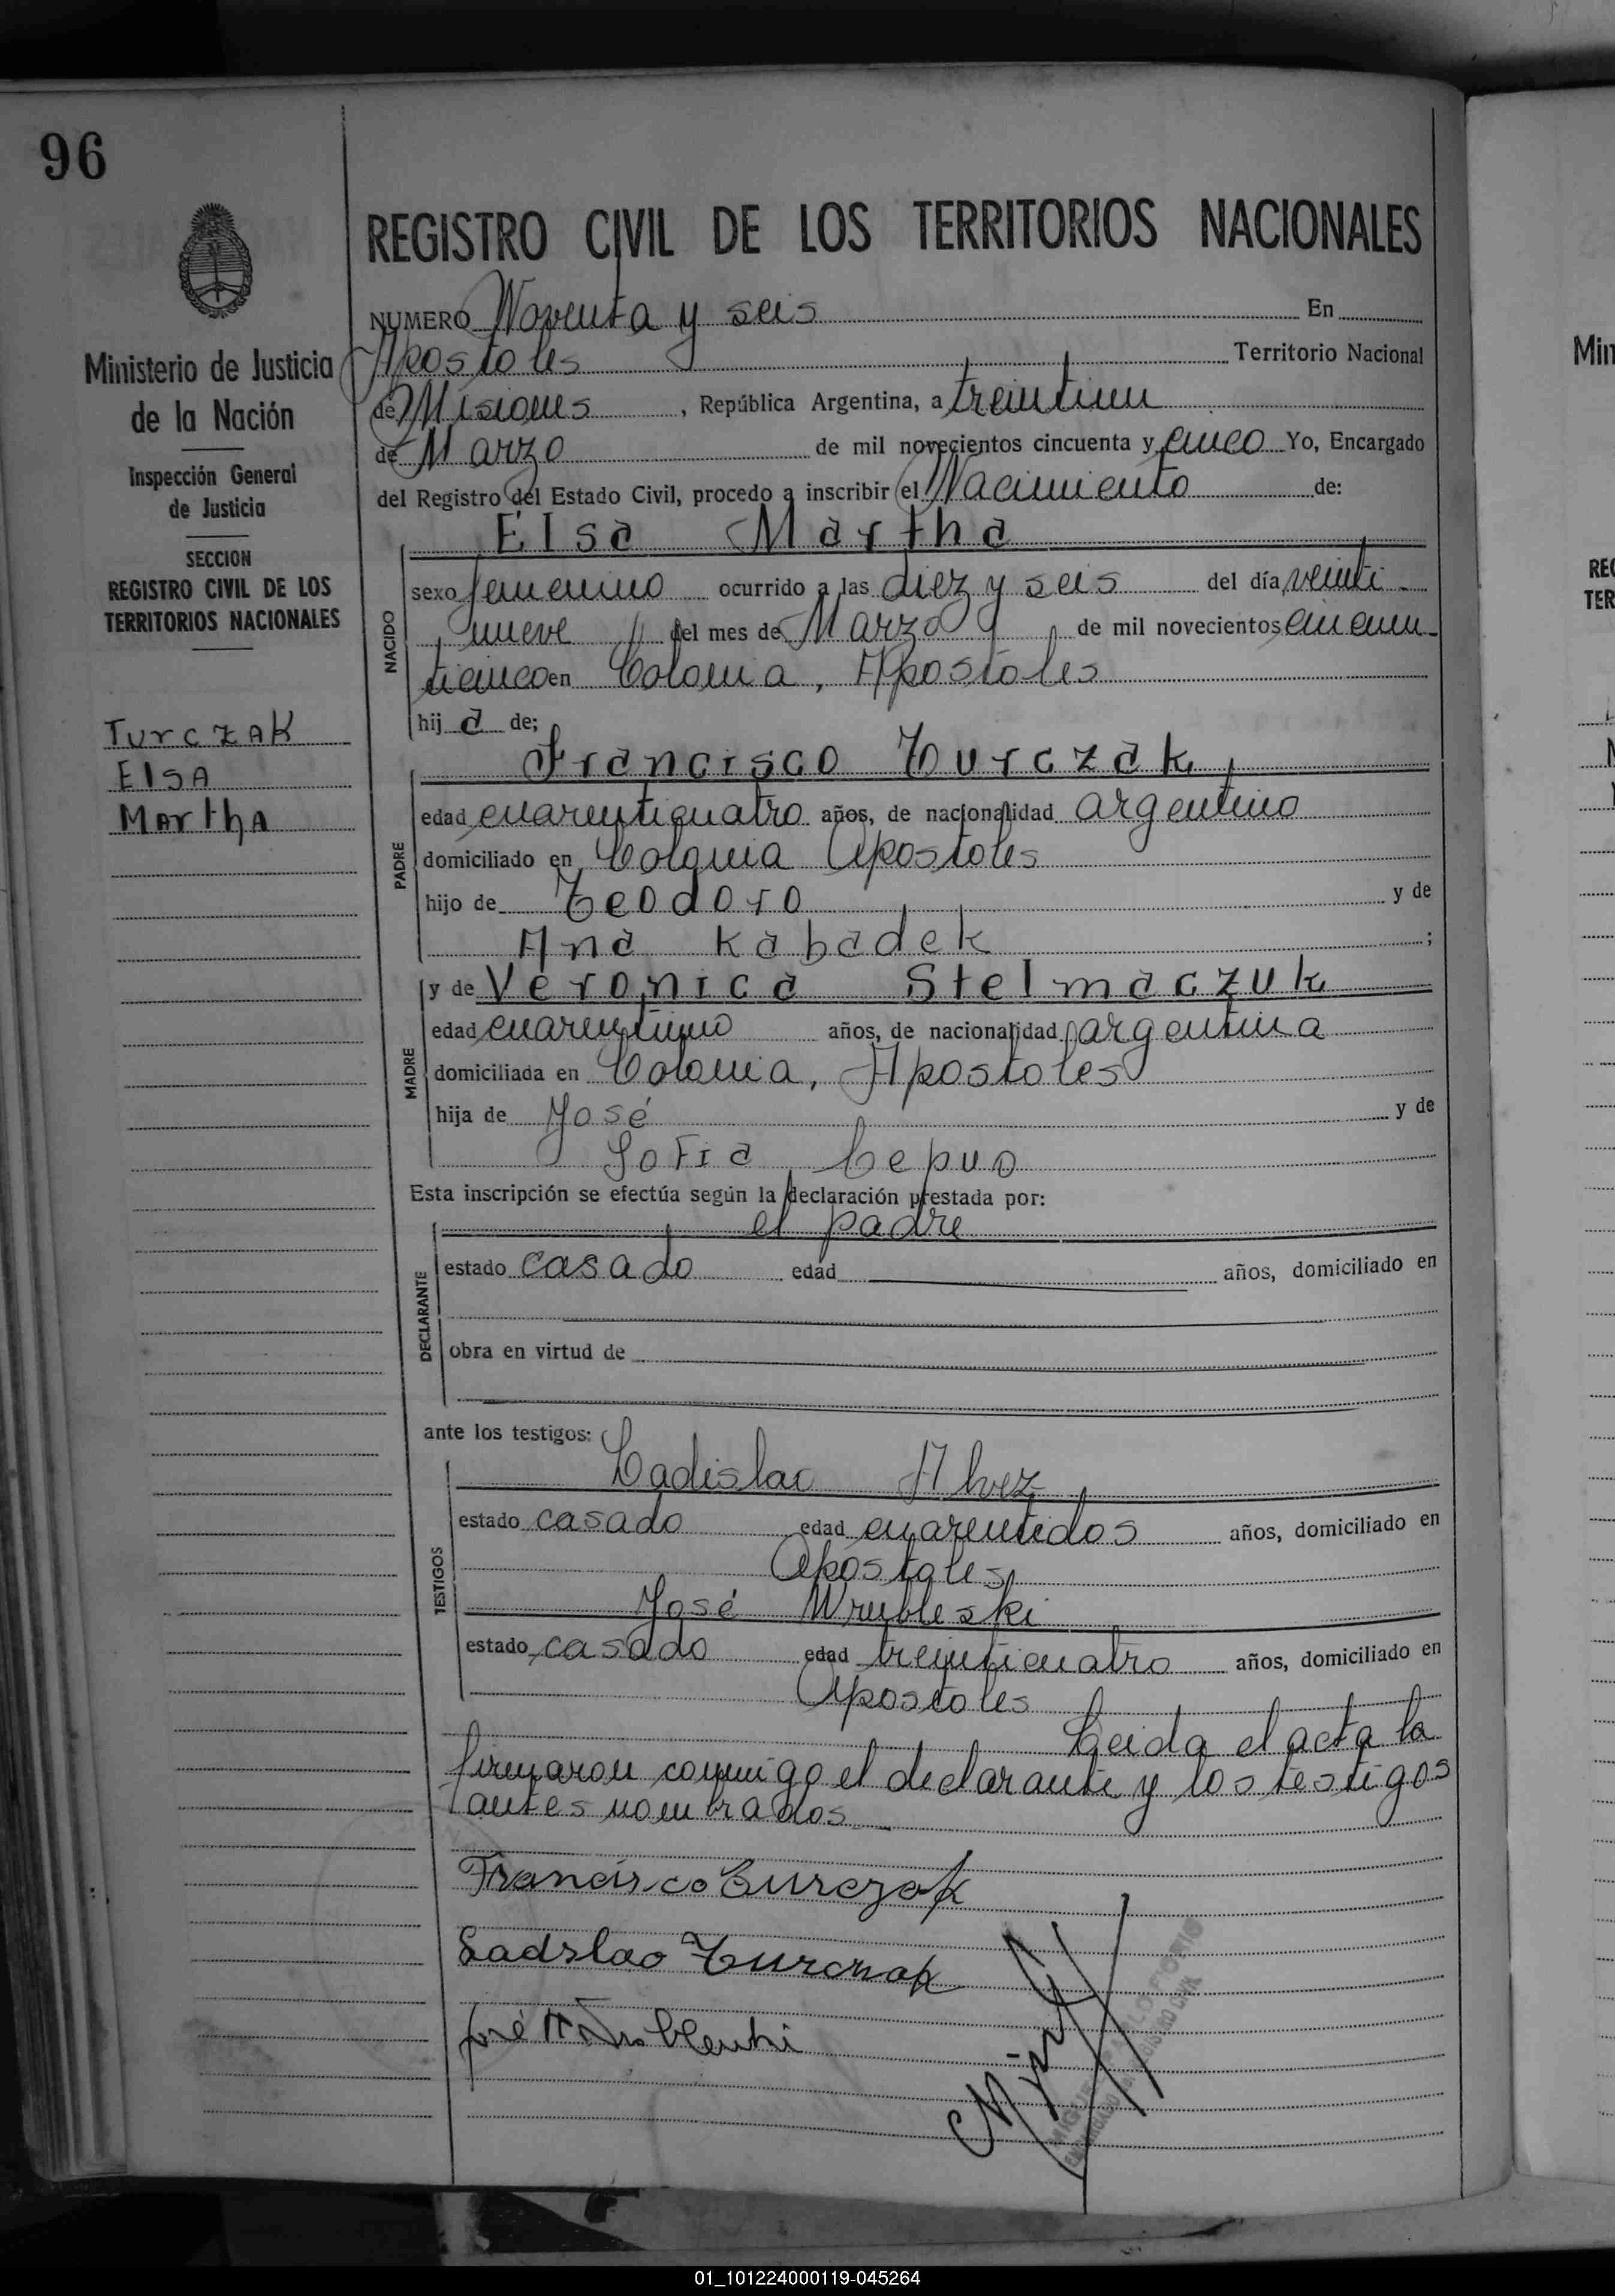 96
REGISTRO CIVIL DE LOS TERRITORIOS NACIONALES
NUMERO Noventa y seis En
Apostoles Territorio Nacional
de Misiones, República Argentina, a treintiun
de Marzo de mil novecientos cincuenta y cinco Yo, Encargado
del Registro del Estado Civil, procedo a inscribir el Nacimiento de:
Elsa Martha
NACIDO
sexo femenino ocurrido a las diez y seis del día veinti-
nueve del mes de Marzo de mil novecientos cincuen-
ticinco en Colonia, Apostoles
hija de;
Ministerio de Justicia
de la Nación
Inspección General
de Justicia
SECCION
REGISTRO CIVIL DE LOS
TERRITORIOS NACIONALES
Turczak
Elsa
Martha
PADRE
Francisco Turczak,
edad cuarenticuatro años, de nacionalidad argentino
domiciliado en Colonia Apostoles
hijo de Teodoro y de
Ana Kabadek;
MADRE
y de Veronica Stelmaczuk
edad cuarentiuno años, de nacionalidad argentina
domiciliada en Colonia, Apostoles
hija de José y de
Sofia Cepuo
Esta inscripción se efectúa según la declaración prestada por:
DECLARANTE
el padre
estado casado edad años, domiciliado en
obra en virtud de
ante los testigos:
TESTIGOS
Ladislao Alvez
estado casado edad cuarentidos años, domiciliado en
Apostoles
José Wrubleski
estado casado edad treinticuatro años, domiciliado en
Apostoles
Leida el acta la
firmaron conmigo el declarante y los testigos
antes nombrados
Francisco Turczak
Ladslao Turczak
José
REGISTRO CIVIL
Min
REG
TER
01_101224000119-045264